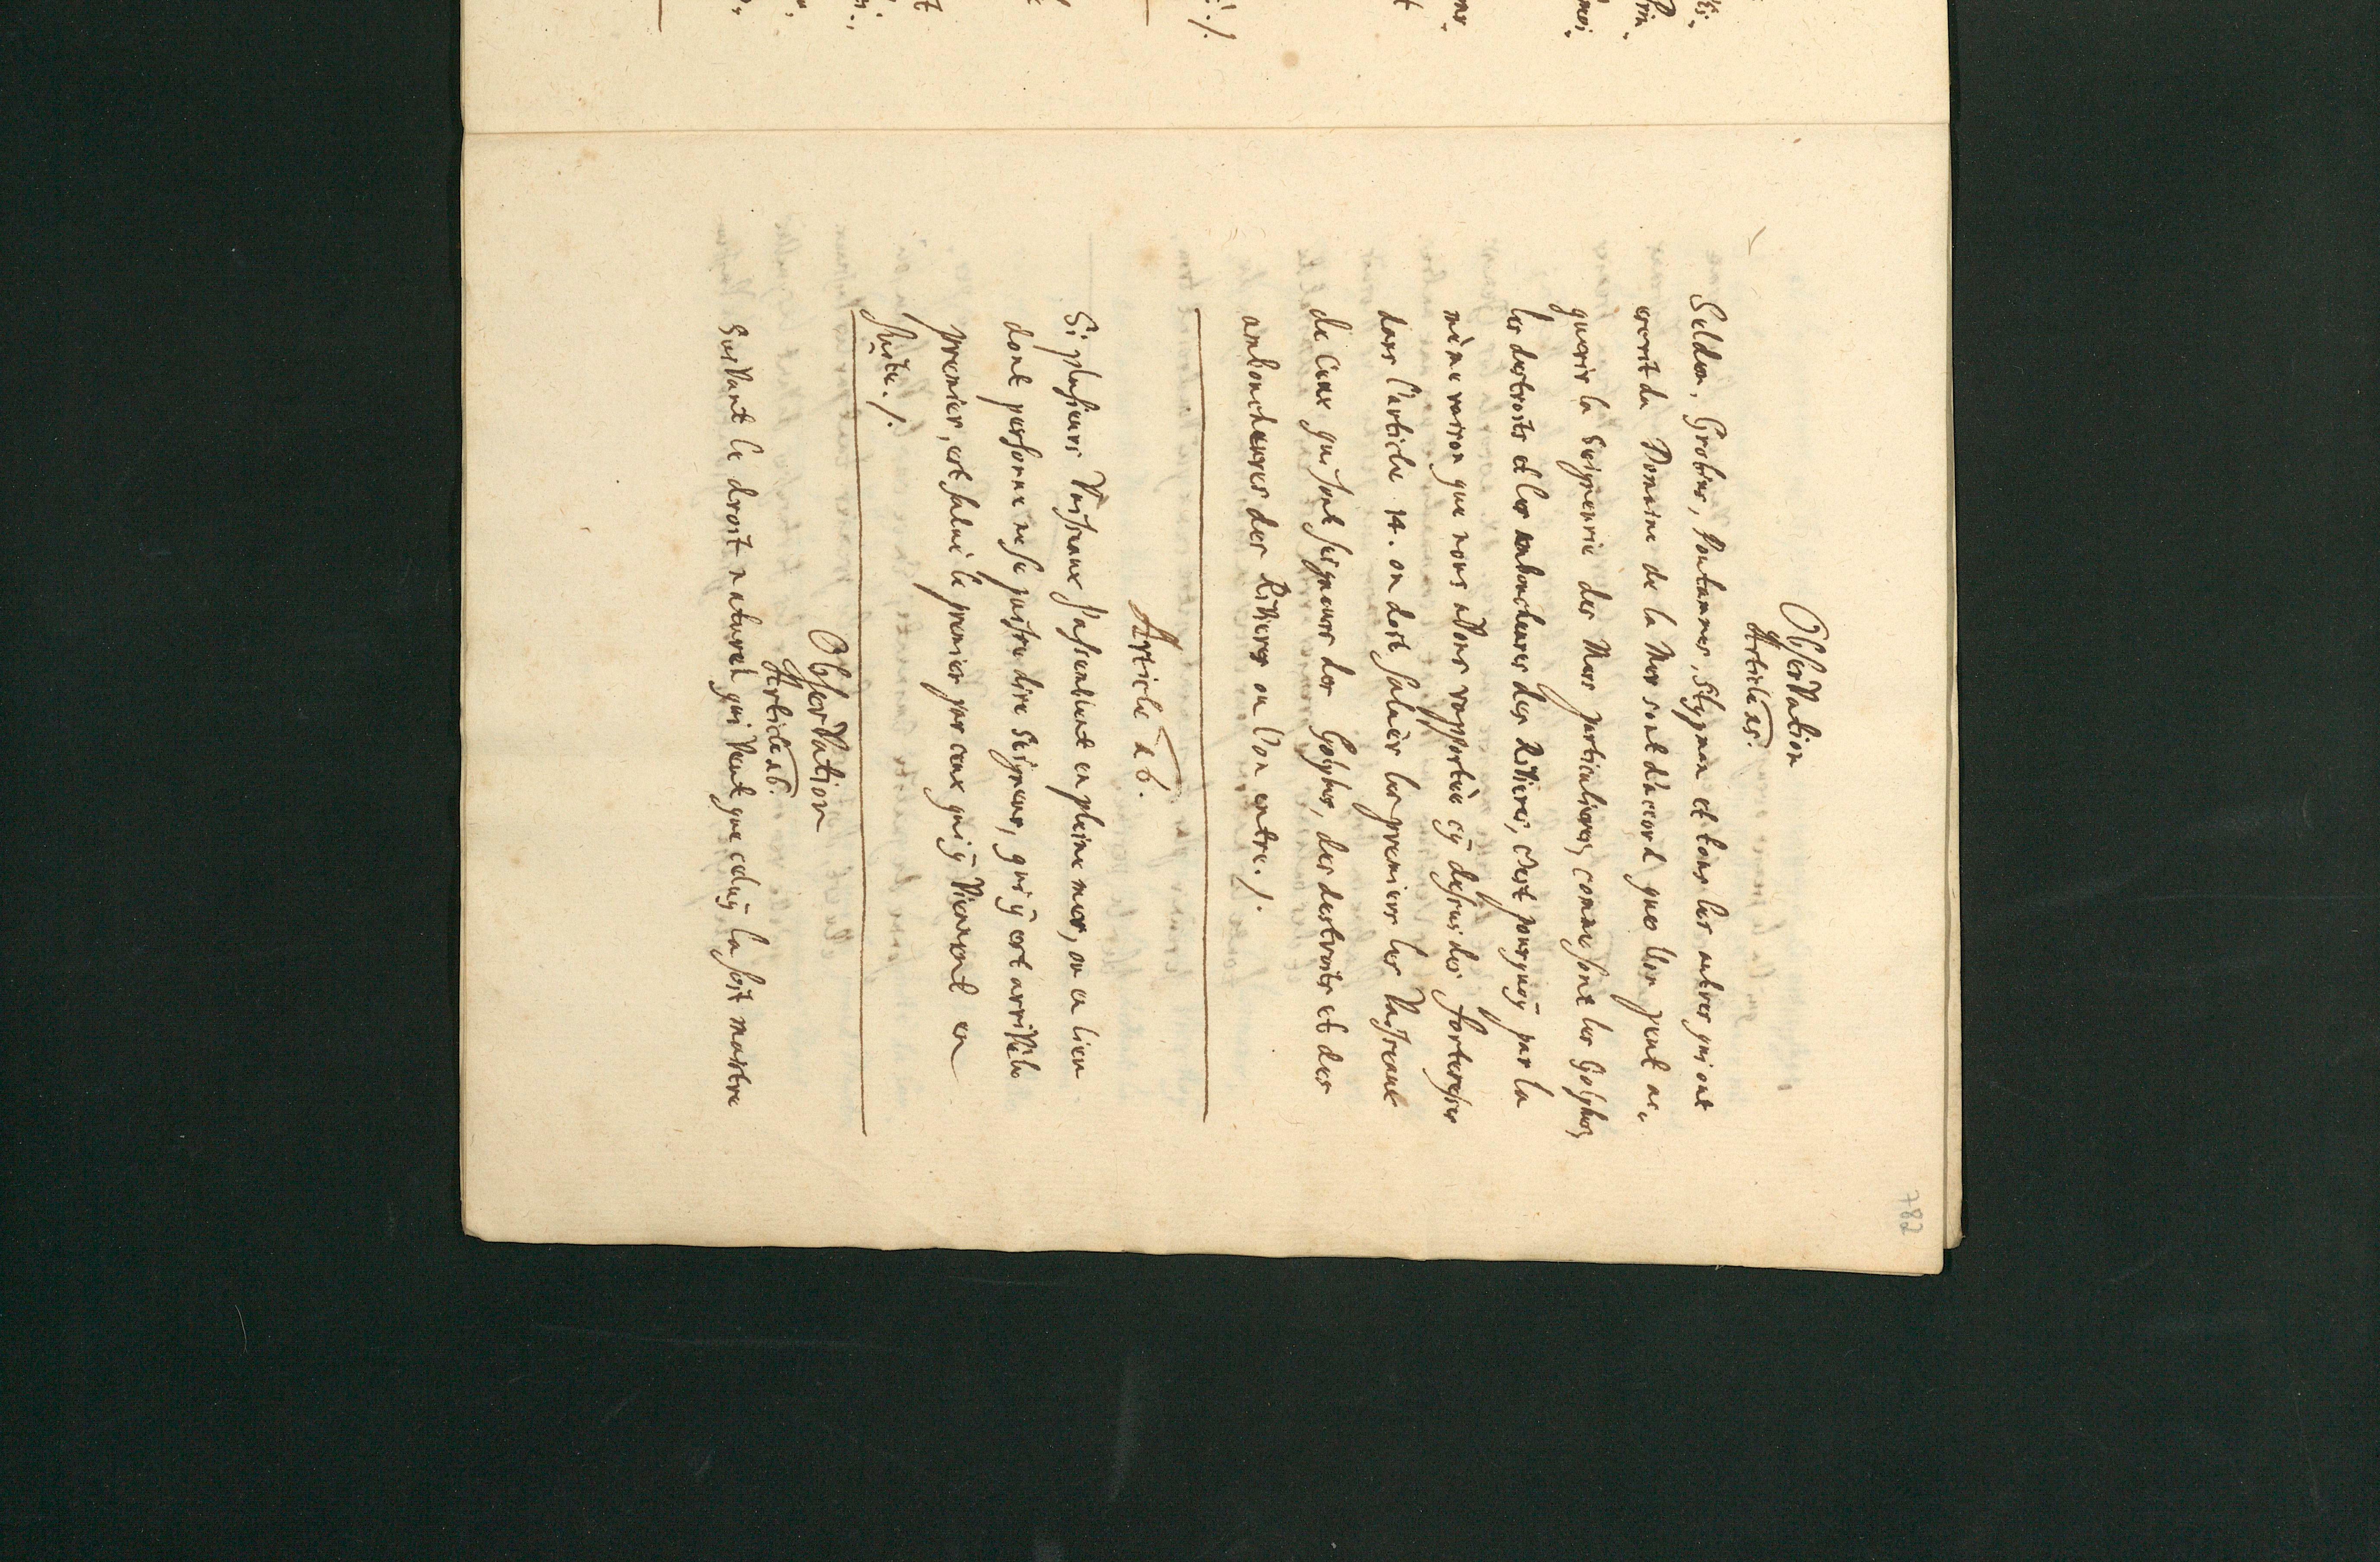 287
ObserVation
Article 25.
Selden, Grotius, Pontanus, Stypman et tous les autres qui ont
escrit du Domaine de la Mer sont d'accord que l'on peut ac„
querir la Seigneurie des Mers particulieres, comme sont les Golphes,
les destroits et les embouchures des Rivieres, c'est pourquoÿ par la
même raison que nous avons rapportée cÿ dessus des forteresses
dans l'article 14. on doit saluër les premiers les Vaisseaux
de Ceux qui sont seigneurs des Golphes, des destroits et des
embouchures des Rivieres ou l'on entre. /.
Article 26.
Si plusieurs Vaisseaux s'assemblent en pleine mer, ou en lieu
dont personne ne se puisse dire Seigneur, qui ÿ est arrivé le
premier, est salué le premier par ceux qui ÿ Viennent en
suite. /.
ObserVation
Article 26.
SuiVant le droit naturel qui Veut que celuÿ la soit maistre